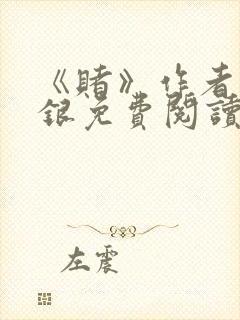 《賭》作者
銀免費閱讀
左震